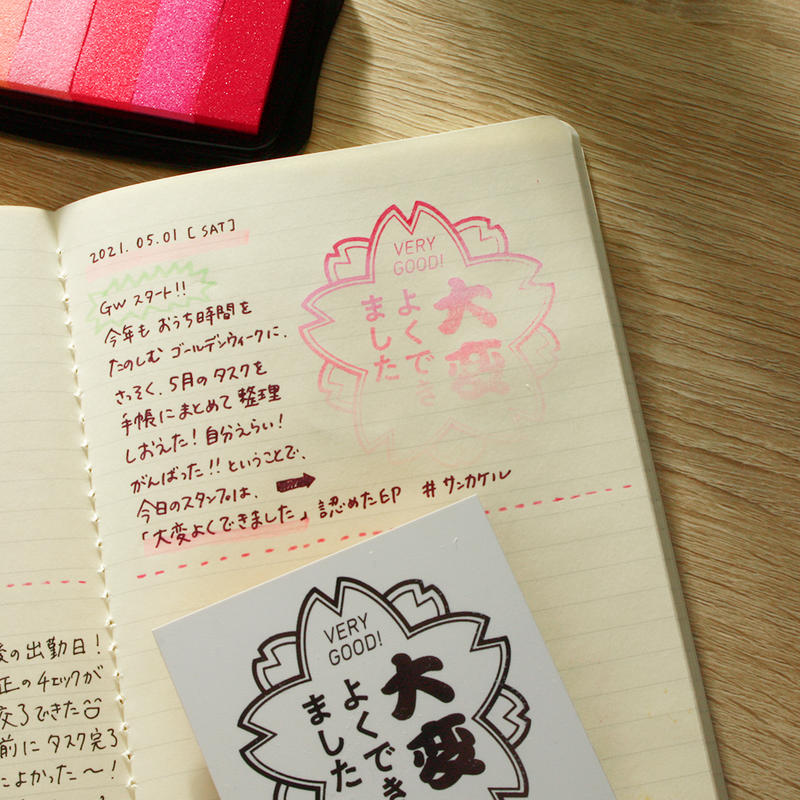 2021.05.01 [SAT]
GW スタート!!
今年も おうち時間を
たのしむ ゴールデンウィークに.
さっそく、5月の タスクを
手帳に まとめて 整理
しおえた! 自分えらい!
がんばった!! ということで、
今日のスタンプは、
「大変よくできました」 認めた印 #サンカケル
VERY
GOOD!
大変
よくでき
ました
の出勤日!
正のチェックが
できた
前に タスク完了
よかった〜!
VERY
GOOD!
大変
よくでき
ました